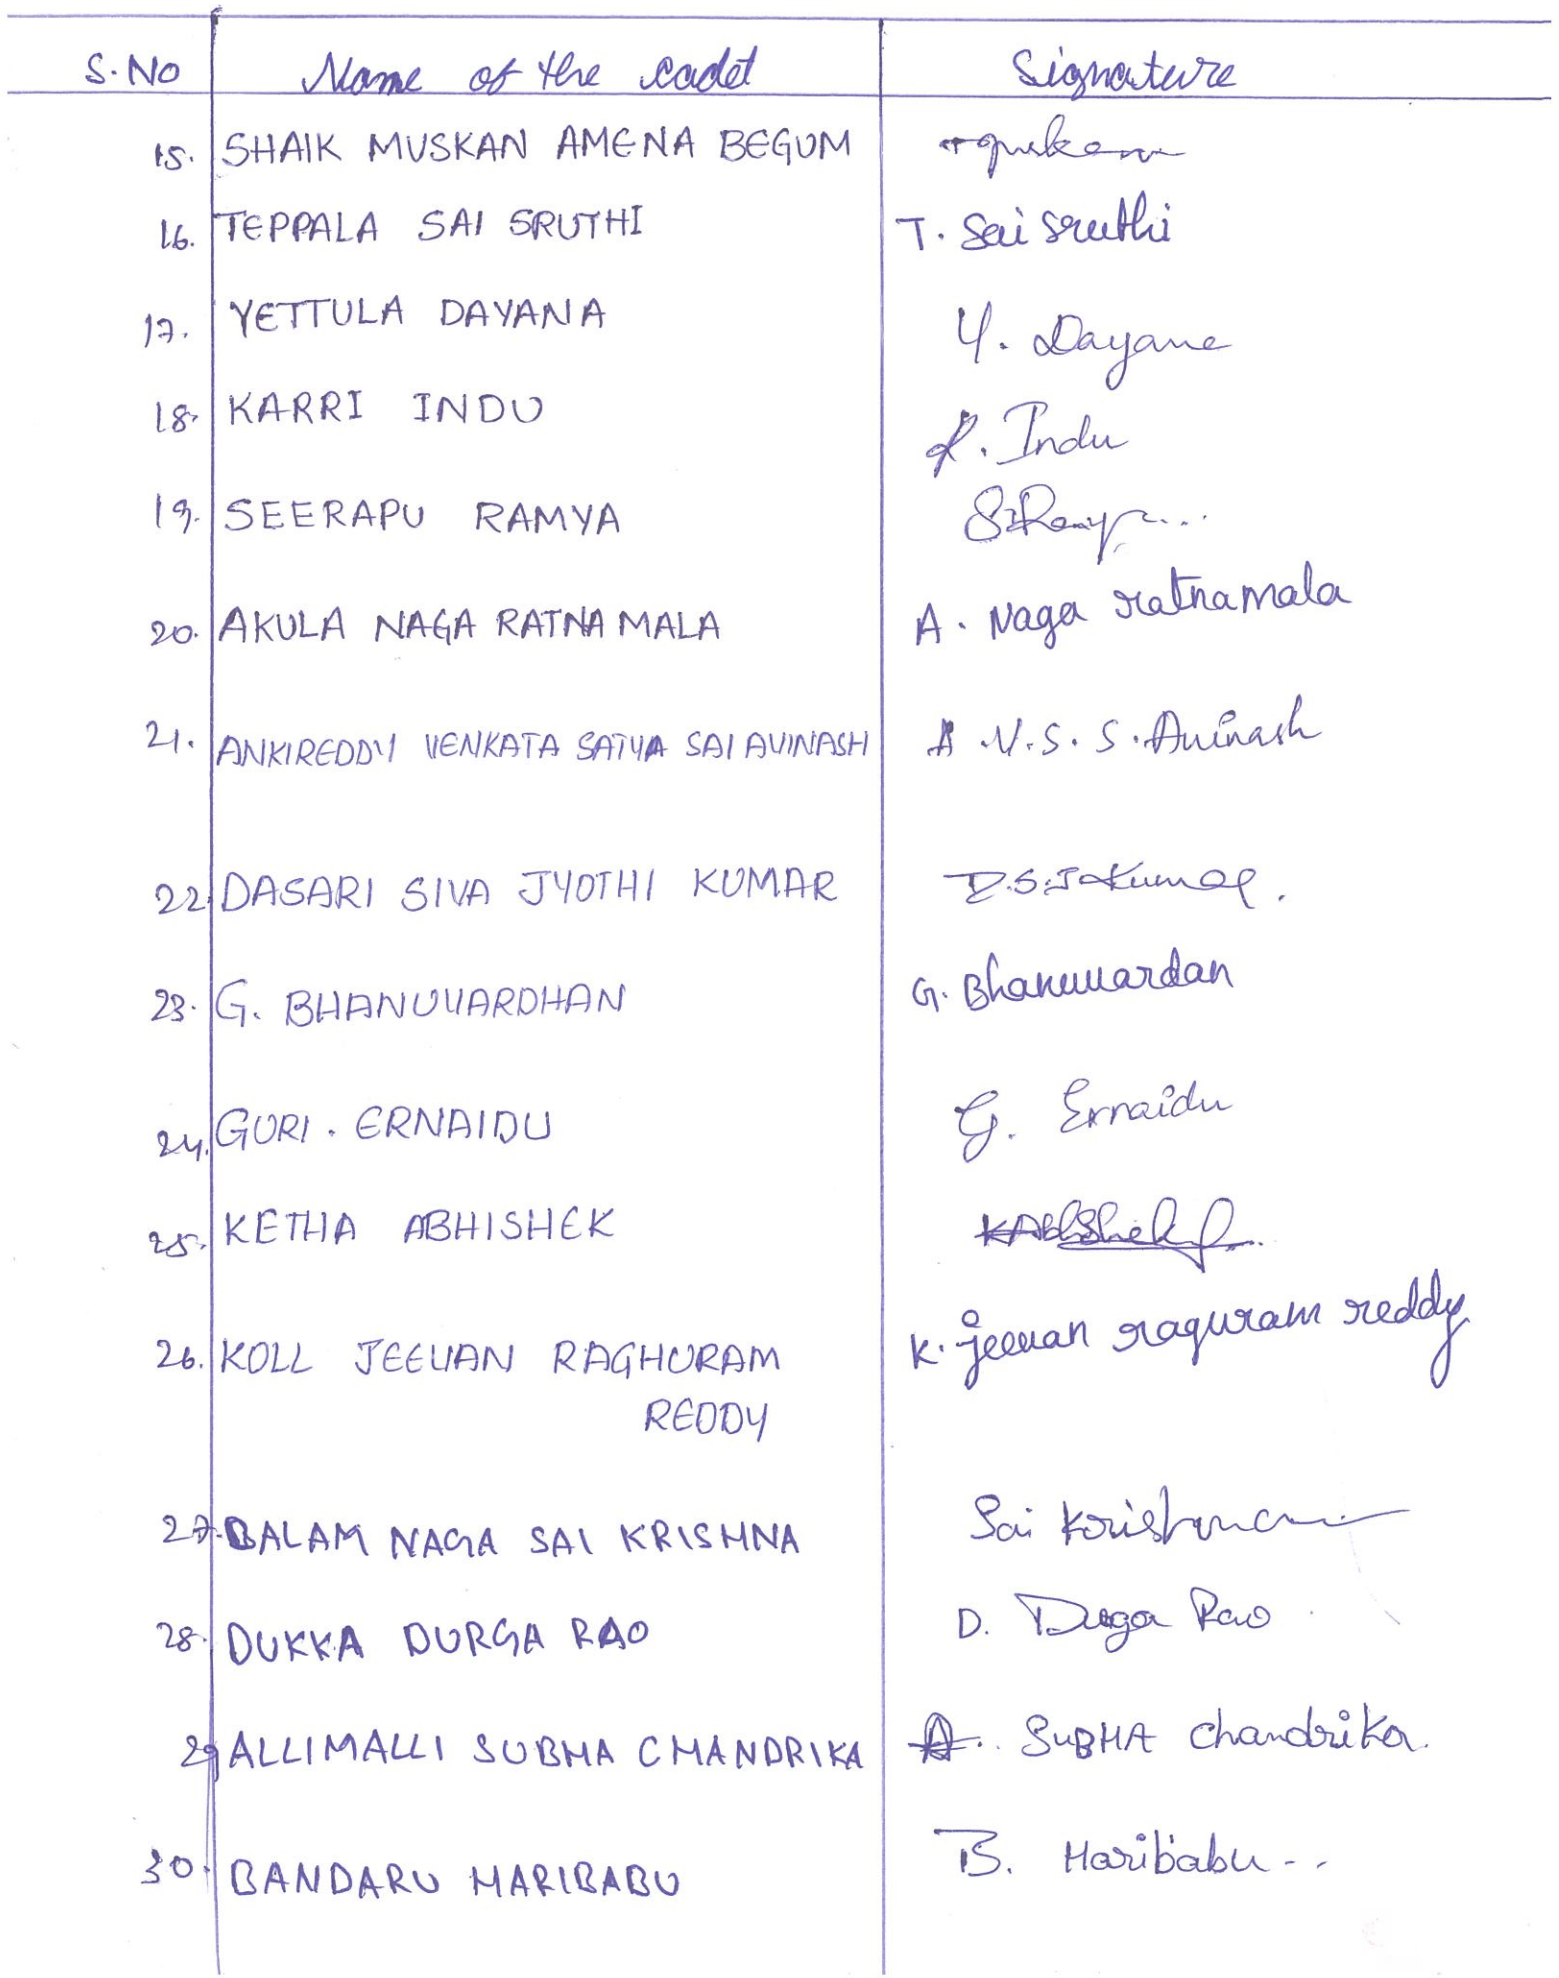 S.No Name of the cadet Signature
15. SHAIK MUSKAN AMENA BEGUM
16. TEPPALA SAI SRUTHI T. Sai Sruthi
17. YETTULA DAYANA Y. Dayana
18. KARRI INDU K. Indu
19. SEERAPU RAMYA
20. AKULA NAGA RATNA MALA A. Naga ratnamala
21. ANKIREDDY VENKATA SATYA SAI AVINASH A.V.S.S.Avinash
22. DASARI SIVA JYOTHI KUMAR D.S.J Kumar.
23. G. BHANUVARDHAN G. Bhanuvardan
24. GORI. ERNAIDU G. Ernaidu
25. KETHA ABHISHEK KAbhishek
26. KOLL JEEVAN RAGHURAM K. jeevan raguram reddy
REDDY
27. BALAM NAGA SAI KRISHNA Sai Krishna
28. DUKKA DURGA RAO D. Durga Rao
29 ALLIMALLI SUBHA CHANDRIKA A.. SUBHA Chandrika.
30. BANDARU HARIBABU B. Haribabu..